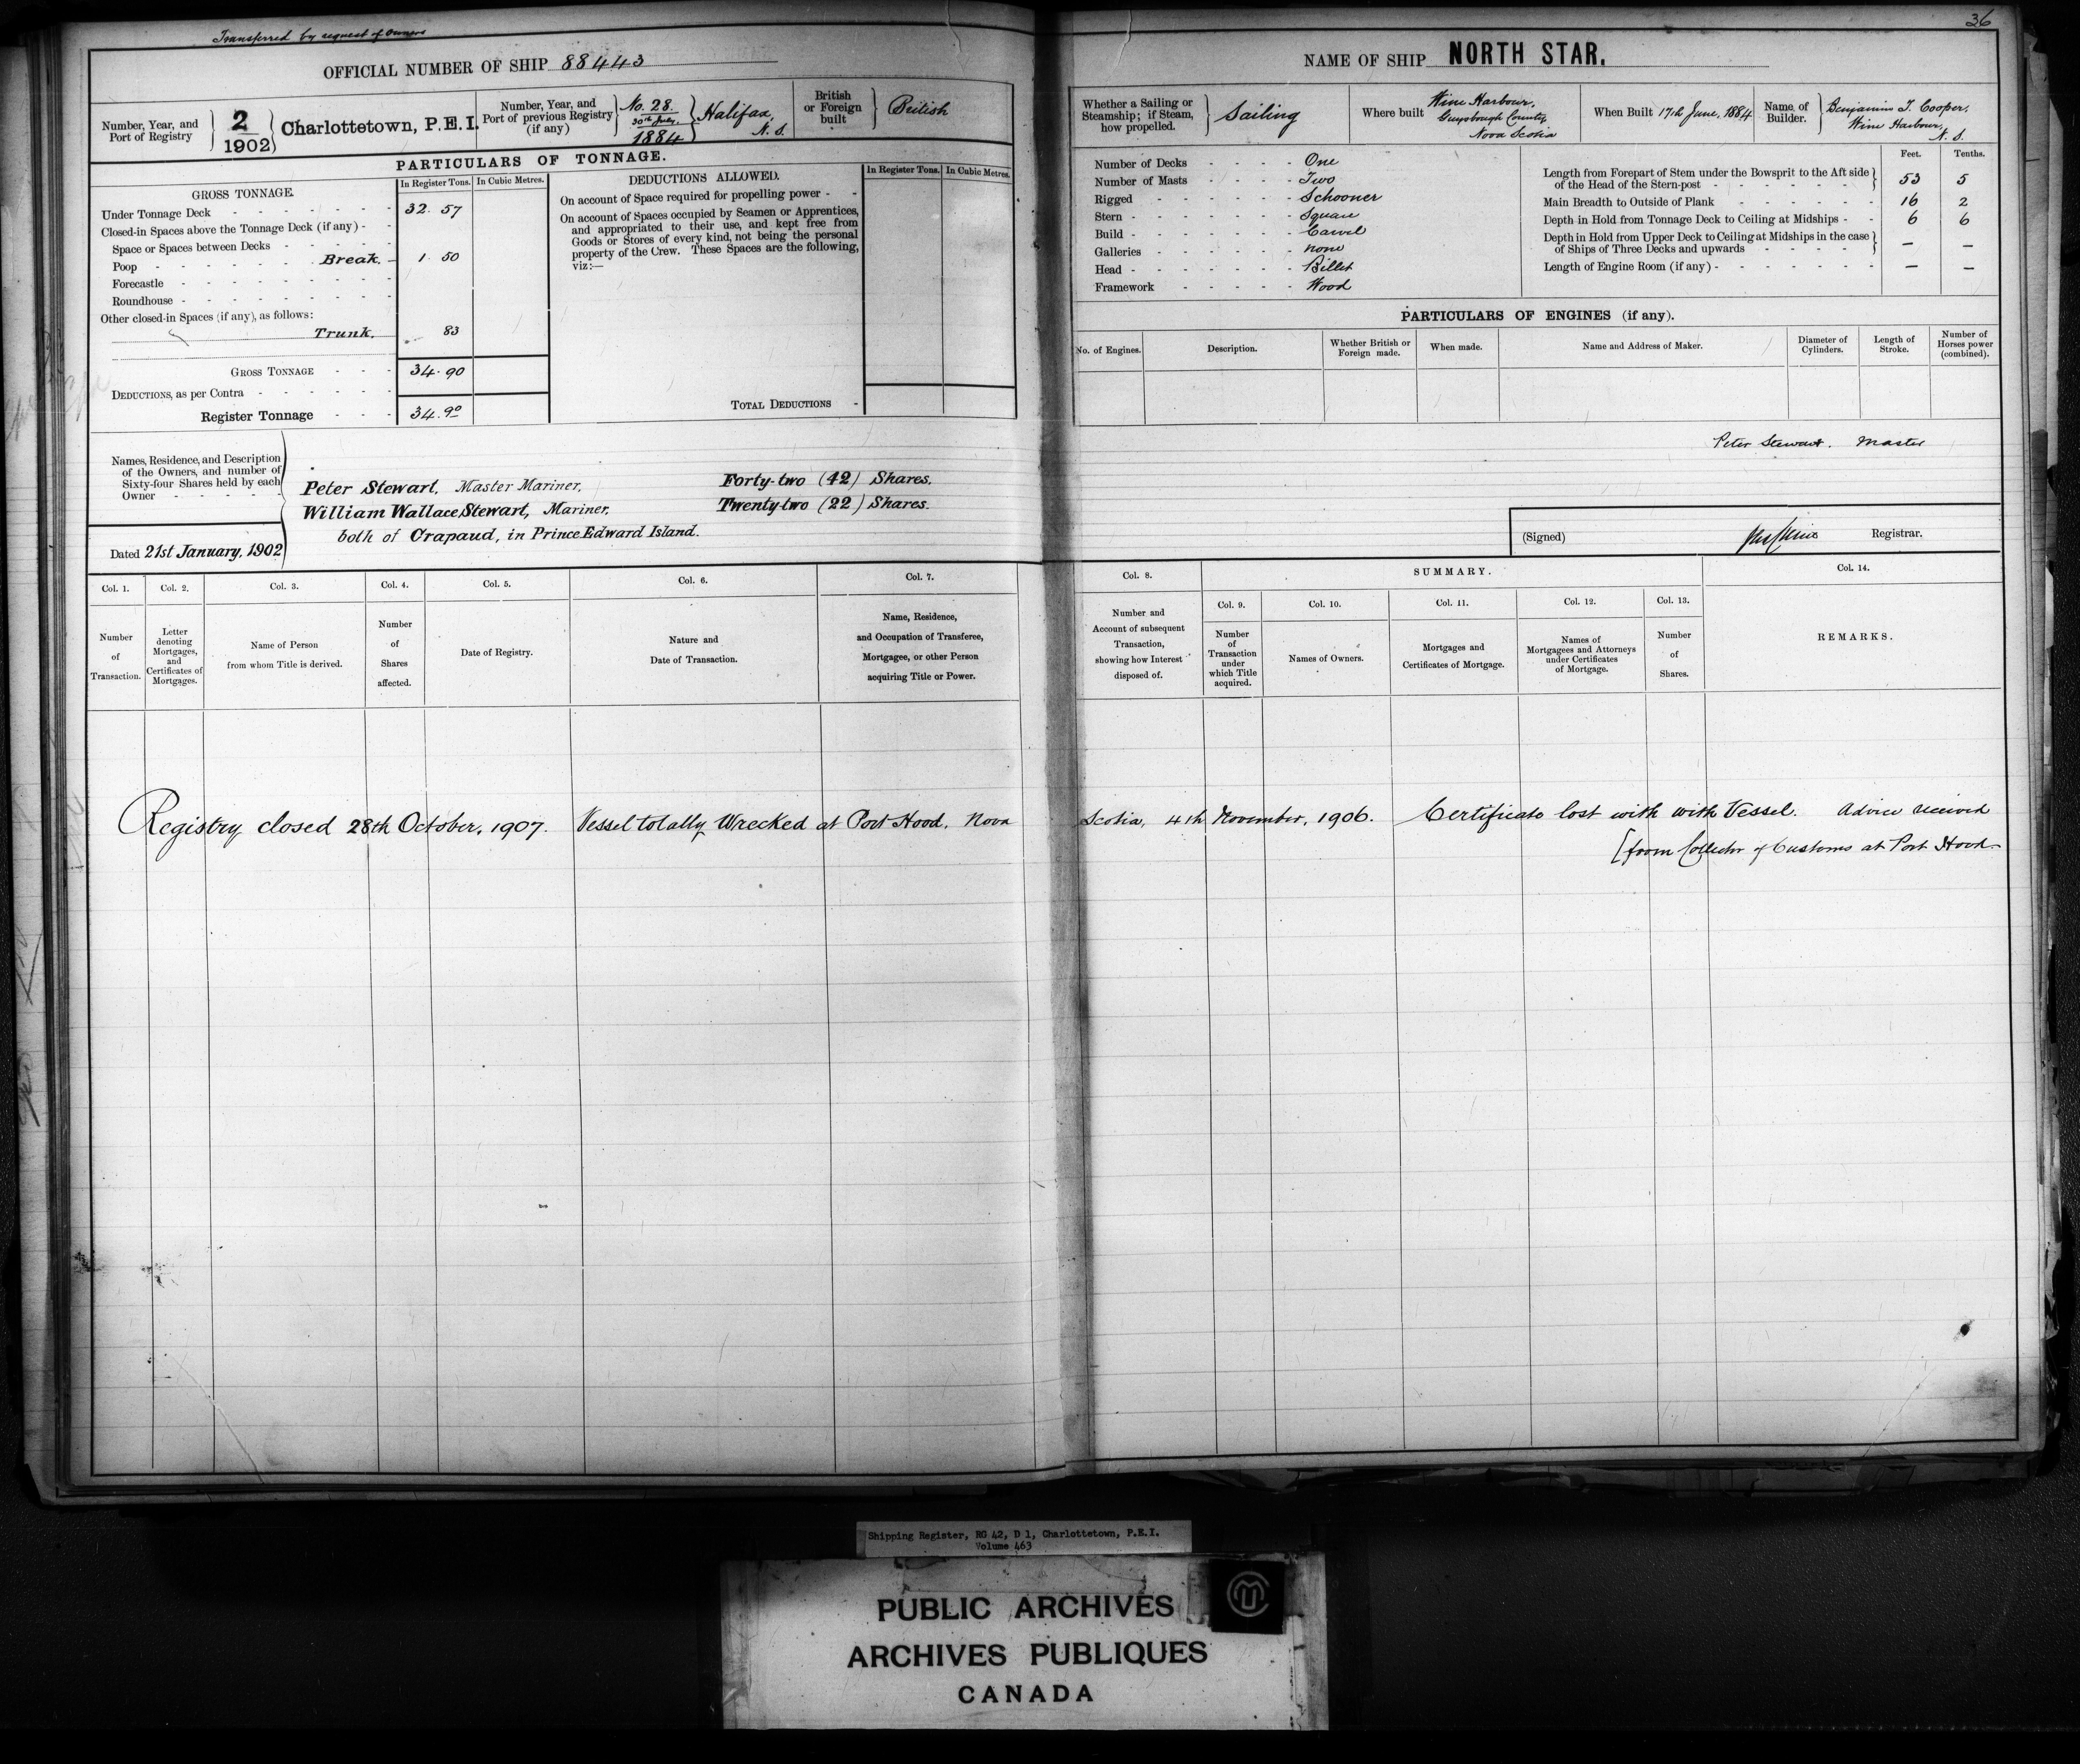 Transferred by request of owners
OFFICIAL NUMBER OF SHIP 88443
Number, Year, and
Port of Registry
2
1902
Charlottetown, P.E.I.
Number, Year, and
Port of previous Registry
(if any)
No. 28.
30th July,
1884
Halifax,
N. S.
British
or Foreign
built
British
PARTICULARS OF TONNAGE.
GROSS TONNAGE.
In Register Tons.
In Cubic Metres.
Under Tonnage Deck 32. 57
Closed-in Spaces above the Tonnage Deck (if any) -
Space or Spaces between Decks
Poop Break. 1. 50
Forecastle
Roundhouse
Other closed-in Spaces (if any), as follows:
Trunk. 83
GROSS TONNAGE 34.90
DEDUCTIONS, as per Contra
Register Tonnage 34.90
DEDUCTIONS ALLOWED.
In Register Tons.
In Cubic Metres.
On account of Space required for propelling power -
On account of Spaces occupied by Seamen or Apprentices,
and appropriated to their use, and kept free from
Goods or Stores of every kind, not being the personal
property of the Crew. These Spaces are the following,
viz:—
TOTAL DEDUCTIONS -
Names, Residence, and Description
of the Owners, and number of
Sixty-four Shares held by each
Owner
Peter Stewart, Master Mariner, Forty-two (42) Shares.
William Wallace Stewart, Mariner, Twenty-two (22) Shares.
both of Crapaud, in Prince Edward Island.
Dated 21st January, 1902
Col. 1.
Number
of
Transaction.
Col. 2.
Letter
denoting
Mortgages,
and
Certificates of
Mortgages.
Col. 3.
Name of Person
from whom Title is derived.
Col. 4.
Number
of
Shares
affected.
Col. 5.
Date of Registry.
Col. 6.
Nature and
Date of Transaction.
Col. 7.
Name, Residence,
and Occupation of Transferee,
Mortgagee, or other Person
acquiring Title or Power.
36
NAME OF SHIP NORTH STAR.
Whether a Sailing or
Steamship; if Steam,
how propelled.
Sailing
Where built
Wine Harbour,
Guysbough County,
Nova Scotia
When Built 17th June, 1884
Name of
Builder.
Benjamin T. Cooper,
Wine Harbour,
N. S.
Number of Decks - One
Number of Masts - Two
Rigged - Schooner
Stern - Square
Build - Carvel
Galleries - none
Head - Billet
Framework - Wood
Feet. Tenths.
Length from Forepart of Stem under the Bowsprit to the Aft side
of the Head of the Stern-post 53 5
Main Breadth to Outside of Plank 16 2
Depth in Hold from Tonnage Deck to Ceiling at Midships - 6 6
Depth in Hold from Upper Deck to Ceiling at Midships in the case
of Ships of Three Decks and upwards — —
Length of Engine Room (if any) - — —
PARTICULARS OF ENGINES (if any).
No. of Engines.
Description.
Whether British or
Foreign made.
When made.
Name and Address of Maker.
Diameter of
Cylinders.
Length of
Stroke.
Number of
Horses power
(combined).
Peter Stewart. Master
(Signed) Registrar.
Col. 8.
Number and
Account of subsequent
Transaction,
showing how Interest
disposed of.
SUMMARY.
Col. 9.
Number
of
Transaction
under
which Title
acquired.
Col. 10.
Names of Owners.
Col. 11.
Mortgages and
Certificates of Mortgage.
Col. 12.
Names of
Mortgagees and Attorneys
under Certificates
of Mortgage.
Col. 13.
Number
of
Shares.
Col. 14.
REMARKS.
Registry closed 28th October, 1907. Vessel totally Wrecked at Port Hood, Nova Scotia, 4th November, 1906. Certificate lost with with Vessel. Advice received
[from Collector of Customs at Port Hood
Shipping Register, RG 42, D 1, Charlottetown, P.E.I.
Volume 463
PUBLIC ARCHIVES
ARCHIVES PUBLIQUES
CANADA